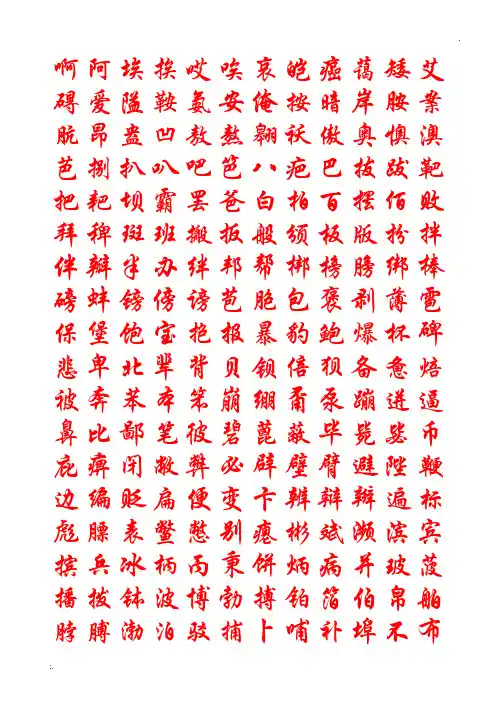 啊阿埃挨哎唉哀皑癌蔼矮艾
碍爱隘鞍氨安俺按暗岸胺案
肮昂盎凹敖熬翱袄傲奥懊澳
芭捌扒叭吧笆八疤巴拔跋靶
把耙坝霸罢爸白柏百摆佰败
拜稗斑班搬扳般颁板版扮拌
伴瓣半办绊邦帮梆榜膀绑棒
磅蚌镑傍谤苞胞包褒剥薄雹
保堡饱宝抱报暴豹鲍爆杯碑
悲卑北辈背贝钡倍狈备惫焙
被奔苯本笨崩绷甭泵蹦迸逼
鼻比鄙笔彼碧蓖蔽毕毙毖币
庇痹闭敝弊必辟壁臂避陛鞭
边编贬扁便变卞辨辩辫遍标
彪膘表鳖憋别瘪彬斌濒滨宾
摈兵冰柄丙秉饼炳病并玻菠
播拨钵波博勃搏铂箔伯帛舶
脖膊渤泊驳捕卜哺补埠不布